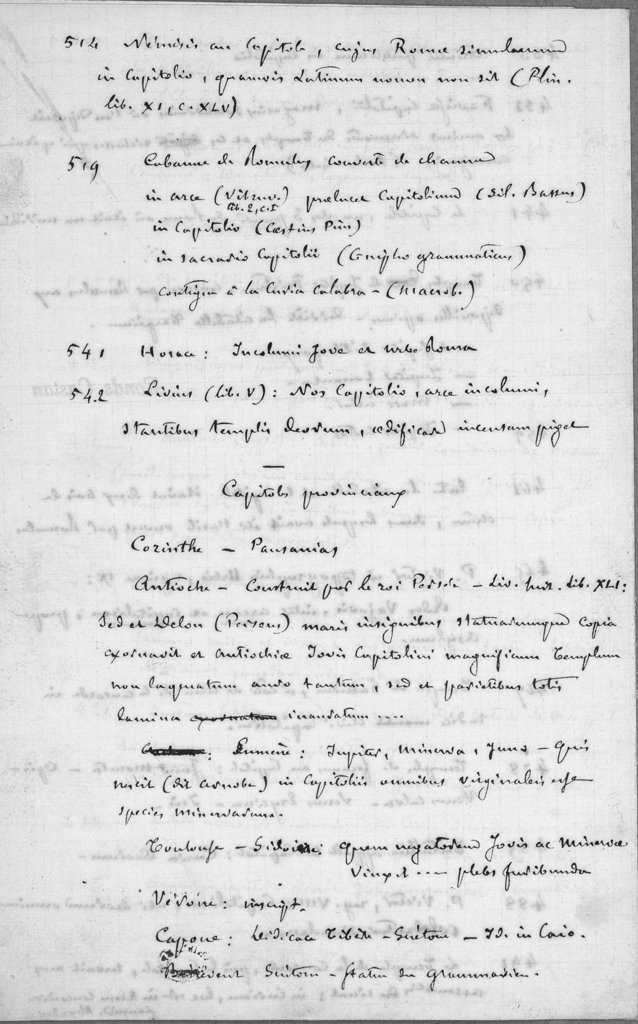 514 Némésis au Capitole, cujus Romæ simulacrum
in Capitolio, quamvis Latinum nomen non sit (Plin.
lib. XI, c. XLV)
519 Cabanne de Romulus couverte de chaume
in arce (Vitruv. lib. 2, c. I) prælucet Capitolium (Sil. Bassus)
in Capitolio (Cæstius Pius)
in sacrario Capitolii (Gnipho grammaticus)
contigua à la Curia Calabra - (Macrob.)
541 Horace: Incolumi Jove et urbe Roma
542 Livius (lib. V): Nos Capitolio, arce incolumi,
stantibus templis deorum, ædificare incensam piget
Capitoles provinciaux
Corinthe - Pausanias
Antioche - Construit par le roi Persée - Liv. lib. XLI:
Sed et Delon (Perseus) maris insignibus statuarumque copia
exornavit et Antiochiæ Jovis Capitolini magnificum templum
non laqueatum auro tantum, sed et parietibus totis
lamina inauratum ....
Jupiter, Minerva, Juno - Quis
nescit (dit Arnobe) in Capitoliis omnibus virginaleis esse
species Minervarum.
Toulouse - Sidoine: quem negatorem Jovis ac Minervæ
vinxit .... plebs furibunda
Vérone: inscript.
Capoue: dédicace Tibère - Suétone - Id. in Caio.
Bénévent Suétone - statue du grammairien.